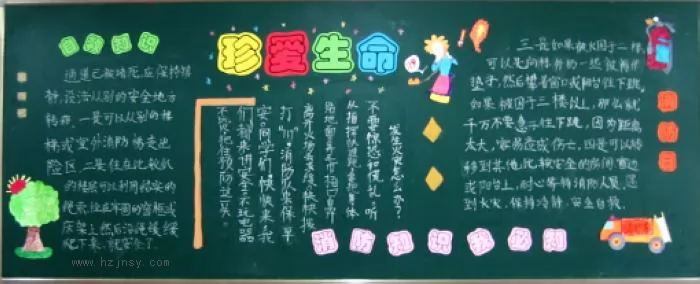 自救知识
通道已被堵死,应保持镇
静,设法从别的安全地方
转移,一是可以从别的楼
梯或室外消防梯走出
险区,二是住在比较低
的楼层可以利用结实的
绳索,拴在牢固的窗框或
床架上,然后沿绳缓缓
爬下来,就安全了。
珍爱生命
发生火灾怎么办?
不要惊慌和慌乱,听
离开火场
打"119",消防队来保平
安,同学们,快快来,我
们都来讲安全,不玩电器
不玩火把住预防这一关。
消防知识我必知
三是如果被困于二楼,
可以先向楼外扔一些被褥作
垫子,然后攀着窗口或阳台往下跳。
如果被困于三楼以上,那么就
千万不要急于往下跳,因为距离
太大,容易造成伤亡,四是可以转
移到其他比较安全的房间、窗边
或阳台上,耐心等待消防人员,遇
到大火,保持冷静,安全自救。
www.hzjnsy.com